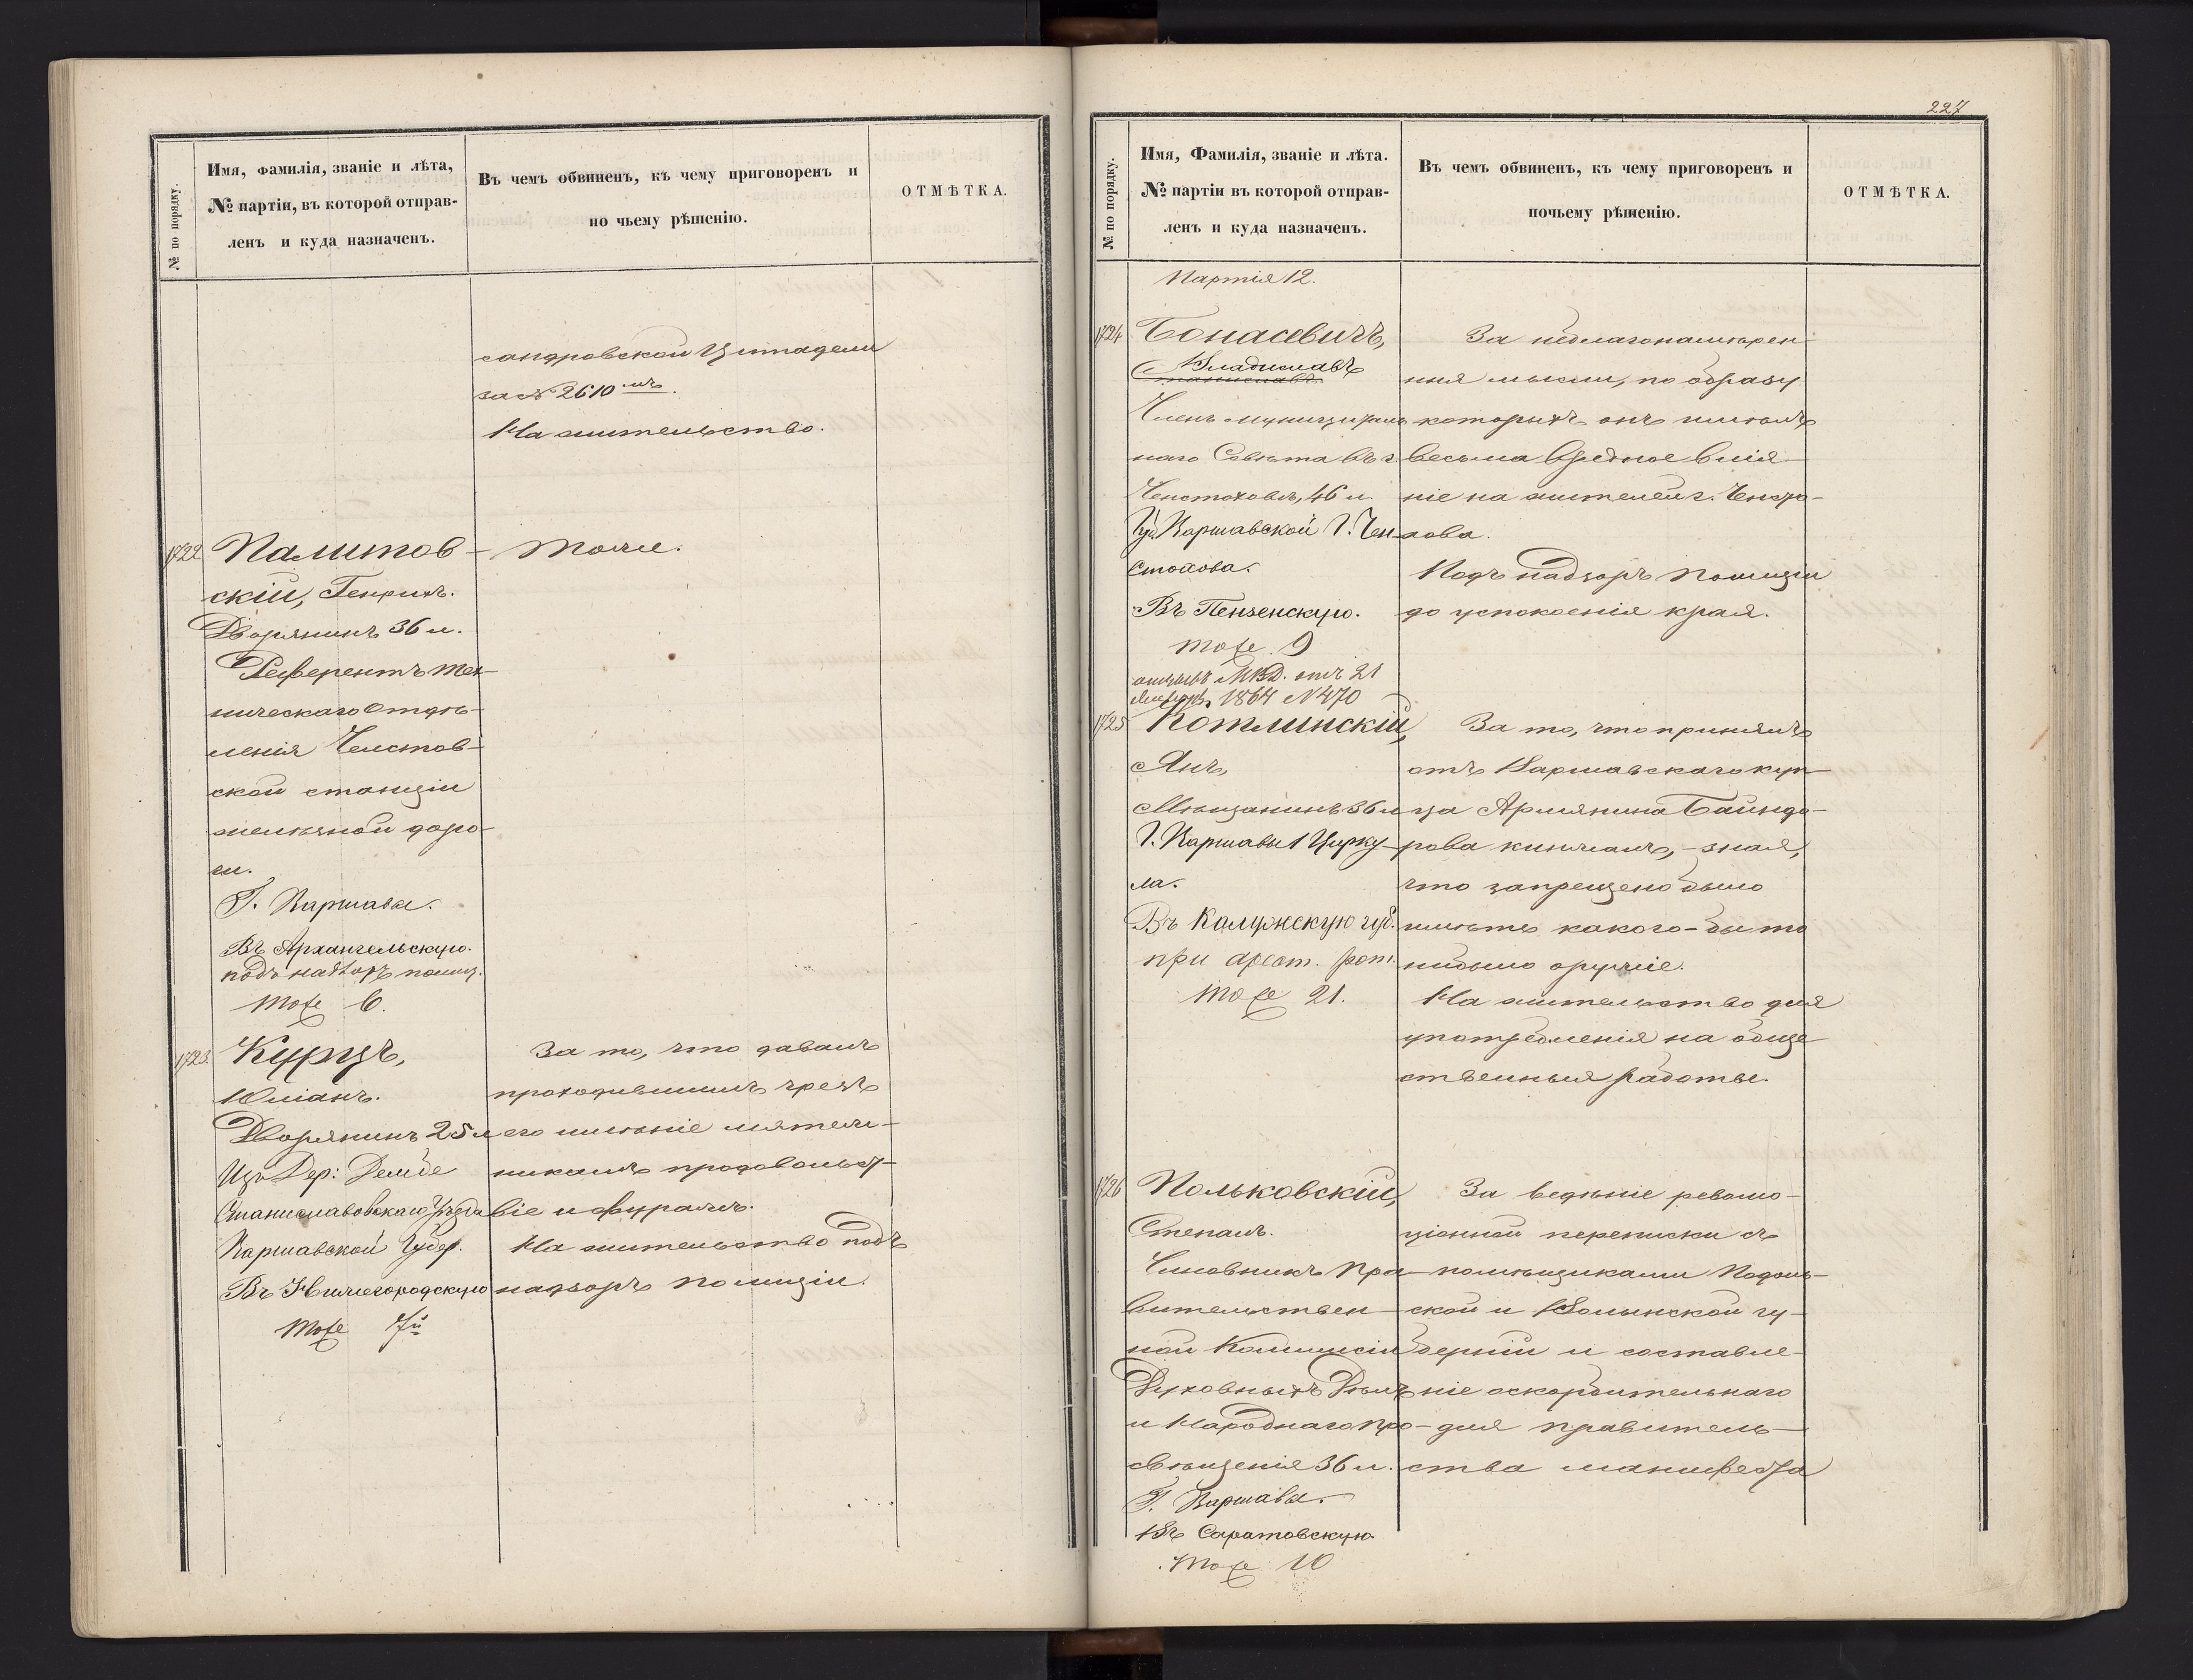 № по порядку.
Имя, фамилія, званіе и лѣта,
№ партіи, въ которой отправ-
ленъ и куда назначенъ.
Въ чемъ обвиненъ, къ чему приговоренъ и
по чьему рѣшенію.
ОТМѢТКА.
сандровской Цитадели
за № 2610мъ.
На жительство.
1722
Палитов-
скій, Генрихъ.
Дворянинъ 36 л.
Референтъ Тех-
ническаго Отдѣ-
ленія
ской станціи
желѣзной доро-
ги.
Г. Варшавы.
Въ Архангельскую.
подъ надзоръ полиц.
Тоже 6.
Тоже.
1723.
Курцъ,
Юліанъ.
Дворянинъ 25 л
Изъ Дер: Дембе
Станиславовскаго Уѣзда
Варшавской Губер.
Въ Нижегородскую
Тоже 7й
За то, что давалъ
проходившимъ чрезъ
его имѣніе мятеж-
никамъ продовольст-
віе и фуражъ.
На жительство подъ
надзоръ полиціи.
227
№ по порядку.
Имя, Фамилія, званіе и лѣта.
№ партіи въ которой отправ-
ленъ и куда назначенъ.
Въ чемъ обвиненъ, къ чему приговоренъ и
почьему рѣшенію.
ОТМѢТКА.
Партія 12.
1724
Бонасевичъ,
Владиславъ
Станиславъ.
Членъ Муниципаль
наго Совѣта въ г.
Ченстоховѣ, 46 л.
Губ Варшавской Г. Чен-
стохова.
Въ Пензенскую.
Тоже 9
отзывъ МВД. отъ 21
1864 №470
За неблагонамѣрен
ныя мысли, по образу
которыхъ онъ имѣлъ
весьма вредное влія-
ніе на жителей г. Ченсто-
хова.
Подъ надзоръ полиціи
до успокоенія края.
1725
Котлинскій,
Янъ,
Мѣщанинъ 36 л
Г. Варшавы 1 Цирку-
ла.
Въ Калужскую губ.
при арест. рот.
Тоже 21.
За то, что принялъ
отъ Варшавскаго куп-
ца Армянина Баиндо-
рова кинжалъ,-зная,
что запрещено было
имѣть какого-бы то
нибыло оружіе.
На жительство для
употребленія на обще
ственныя работы.
1726
Польковскій,
Степанъ.
Чиновникъ Пра-
вительствен-
ной Коммисіи
Духовныхъ Дѣлъ
и Народнаго Про-
свѣщенія 36 л.
Г. Варшавы.
Въ Саратовскую
Тоже 10
За веденіе револю-
ціонной переписки съ
помѣщиками Подоль-
ской и Волынской гу-
берніи и составле-
ніе оскорбительнаго
для правитель-
ства манифеста